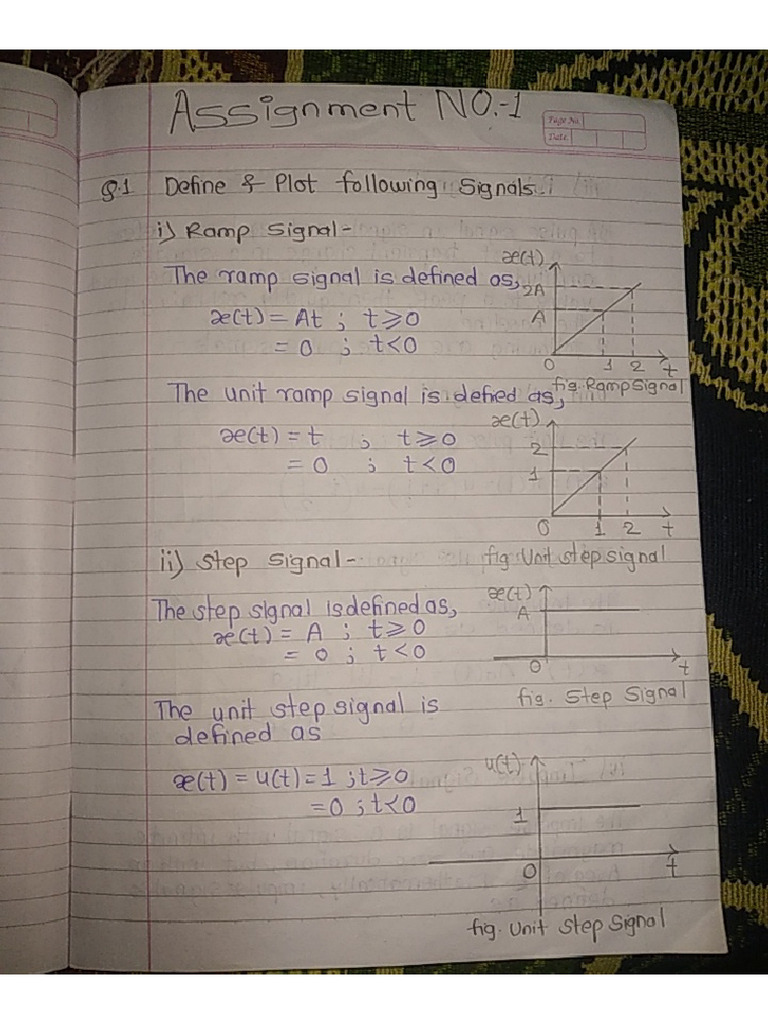 Assignment NO.-1
Page No.
Date
Q.1 Define & Plot following Signals.
i) Ramp Signal-
The ramp signal is defined as,
x(t) = At ; t≥0
= 0 ; t<0
x(t)
2A
A
0 1 2 t
fig. Ramp Signal
The unit ramp signal is defied as,
x(t) = t ; t≥0
= 0 ; t<0
x(t)
2
1
0 1 2 t
fig Unit step signal
ii) Step Signal-
The step signal is defined as,
x(t) = A ; t≥0
= 0 ; t<0
x(t)
A
0 t
fig. Step Signal
The unit step signal is
defined as
x(t) = u(t) = 1 ; t≥0
= 0 ; t<0
u(t)
1
0 t
fig. Unit Step Signal